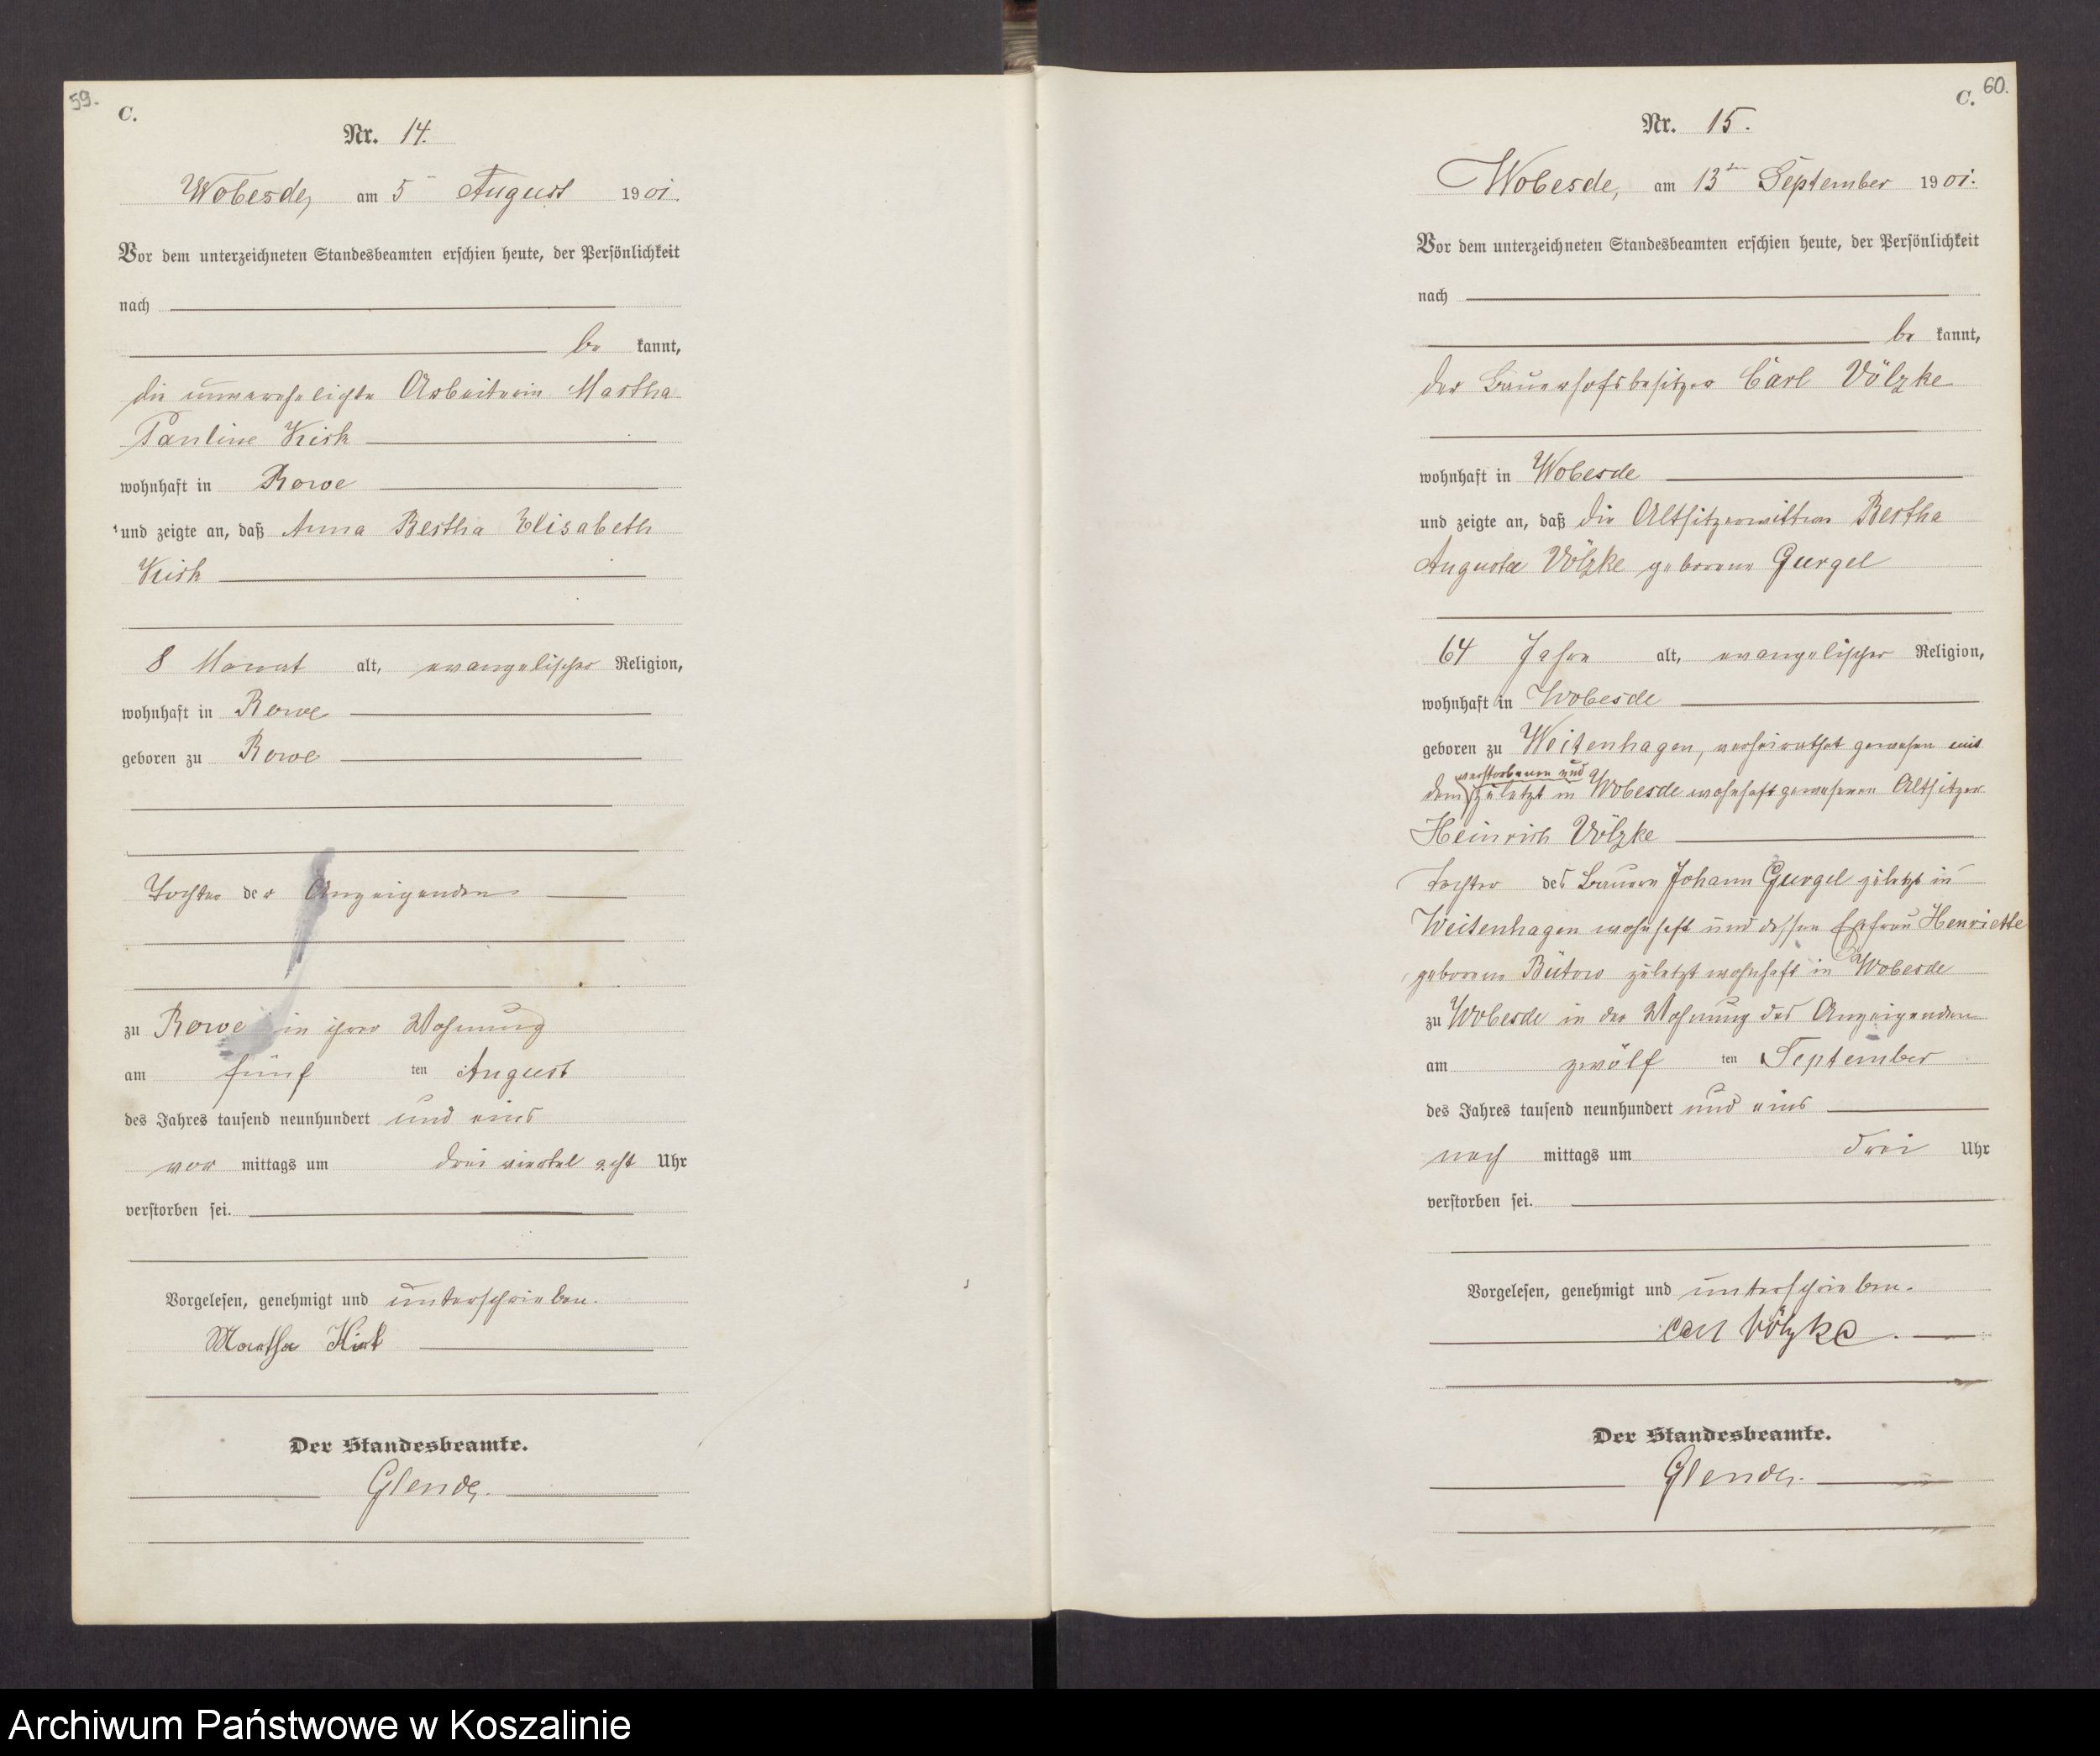 59.
C.
Nr. 14.
Wobesde, am 5 August 1901.
Vor dem unterzeichneten Standesbeamten erschien heute, der Persönlichkeit
nach
be kannt,
die unverehelichte Arbeiterin Martha
Pauline Kirk
wohnhaft in Rowe
und zeigte an, daß Anna Bertha Elisabeth
Kirk
8 Monat alt, evangelischer Religion,
wohnhaft in Rowe
geboren zu Rowe
Tochter der Anzeigenden
zu Rowe in ihrer Wohnung
am fünf ten August
des Jahres tausend neunhundert und eins
vor mittags um drei viertel acht Uhr
verstorben sei.
Vorgelesen, genehmigt und unterschrieben.
Martha Kirk
Der Standesbeamte.
Glende.
60.
C.
Nr. 15.
Wobesde, am 13ten September 1901.
Vor dem unterzeichneten Standesbeamten erschien heute, der Persönlichkeit
nach
be kannt,
der Bauerhofsbesitzer Carl Völzke
wohnhaft in Wobesde
und zeigte an, daß die Altsitzerwittwe Bertha
Auguste Völzke geborene Gurgel
64 Jahre alt, evangelischer Religion,
wohnhaft in Wobesde
geboren zu Weitenhagen, verheirathet gewesen mit
verstorbenen und
dem zuletzt in Wobesde wohnhaft gewesenen Altsitzer
Heinrich Völzke
Tochter des Bauern Johann Gurgel zuletzt in
Weitenhagen wohnhaft und dessen Ehefrau Henriette
geborene Bütow zuletzt wohnhaft in Wobesde
zu Wobesde in der Wohnung des Anzeigenden
am zwölf ten September
des Jahres tausend neunhundert und eins
nach mittags um drei Uhr
verstorben sei.
Vorgelesen, genehmigt und unterschrieben.
Carl Völzke.
Der Standesbeamte.
Glende.
Archiwum Państwowe w Koszalinie